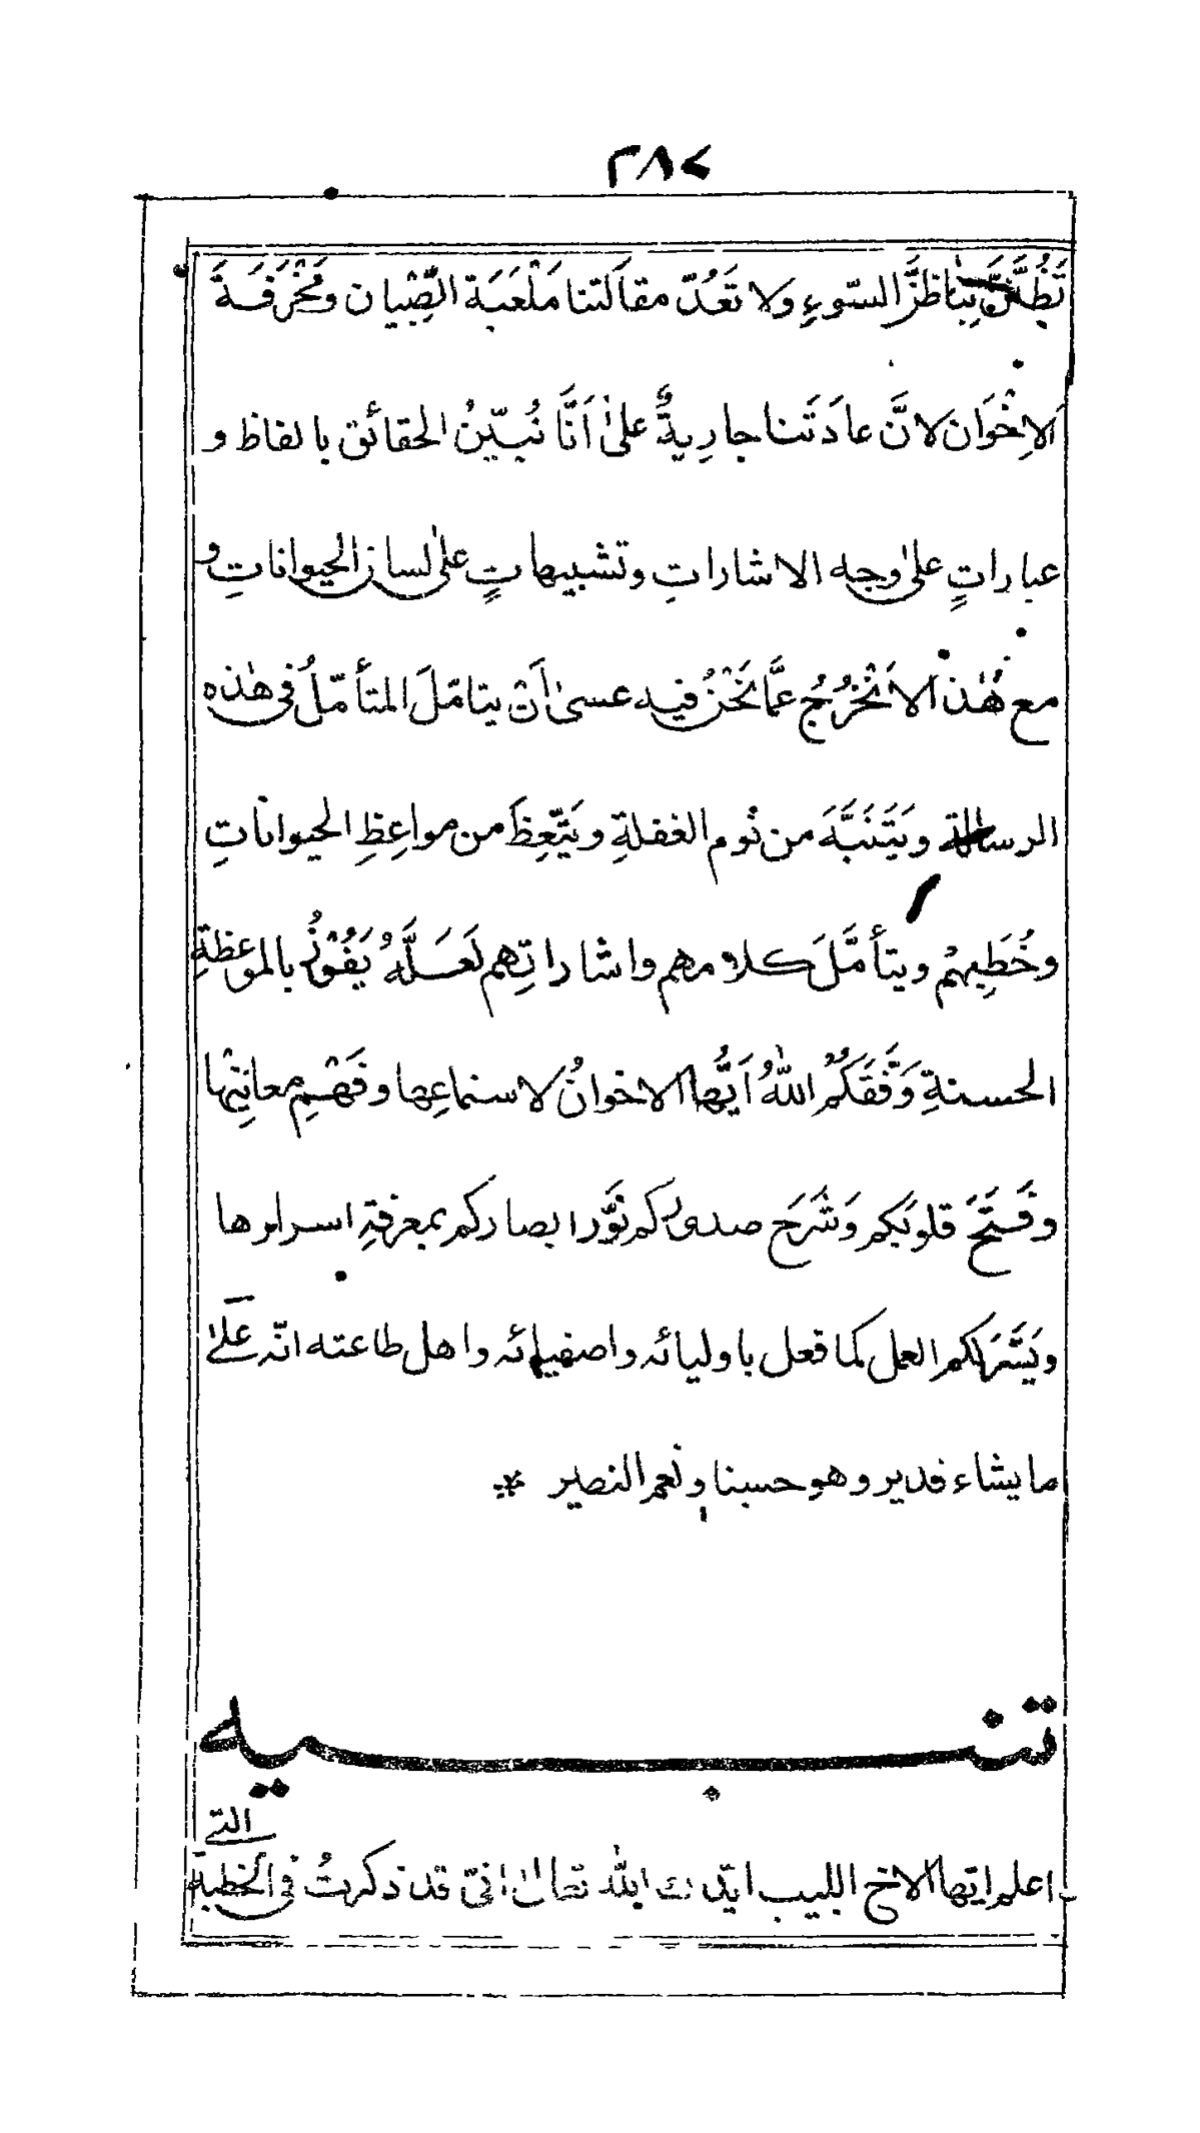 ٢٨٧
تَظُنَّنَّ بِنَا ظَنَّ السّوءِ ولا تَعُدّ مقاَلَتنا مَلْعَبَة الصِّبْيان ومَخْرَفَةَ
الاِخْوَان لانَّ عادَتَنا جارِيةٌ علىٰ اَنَّا نُبيّنُ الحقائق بالفاظ و
عباراتٍ علىٰ وجه الاشاراتِ وتشبيهاتٍ علىٰ لسان الحيواناتِ و
مع هٰذا لاَنَخْرُجُ عمَّا نَحْنُ فيه عسىٰ اَنْ يتامّلَ المتأمّلُ فى هٰذه
الرسالة ويَتَنَبَّهَ من نوم الغفلةِ ويَتّعِظَ من مواعِظِ الحيواناتِ
وخُطَبِهِمْ ويتأمَّلَ كلامهم واشاراتِهم لَعَلَّهُ يَفُوْزُ بالموعظةِ
الحسنةِ وَفَّقَكُمُ اللهُ اَيُّها الاخوانُ لاستماعِها وفَهْمِ معانِيْها
وفَتَحَ قلوبَكم وَشَرَحَ صدوركم نَوَّر ابصاركم بمعرفةِ اسرارها
ويَسَّرَ لكم العمل كما فعل باوليائه واصفيائه واهل طاعته انّه علىٰ
ما يشاء قدير وهو حسبنا ونعم النصير *
تنبيه
اعلم ايّها الاخ اللبيب ايّدك الله تعالىٰ انّى قد ذكرتُ فى الخطبة التى